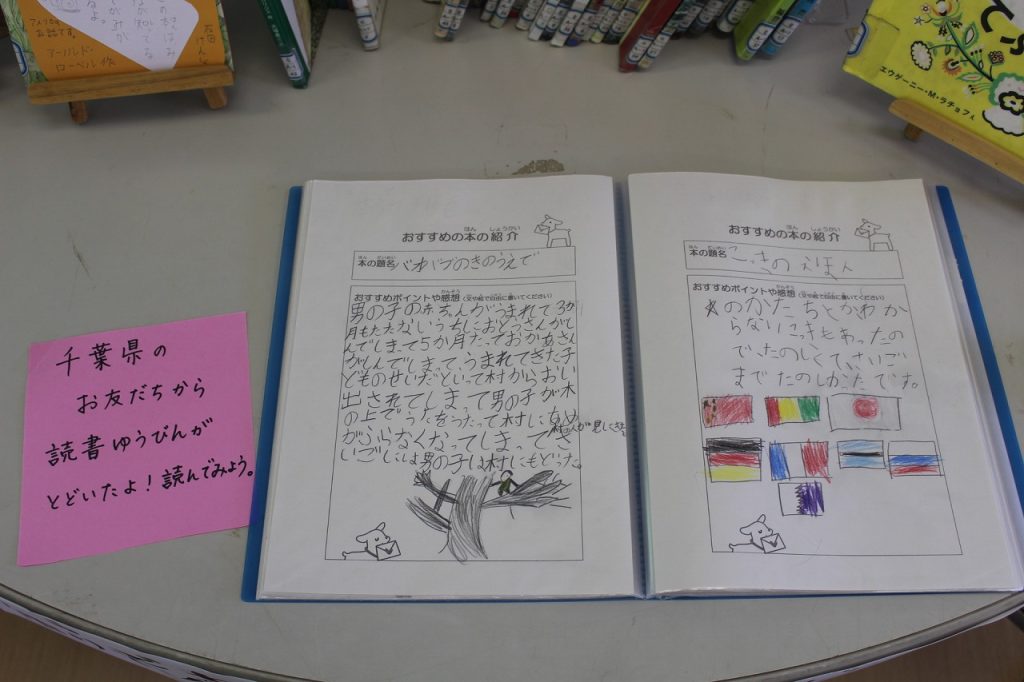 アーノルド・
ローベル 作
エウゲーニー・M・ラチョフ え
千葉県の
お友だちから
読書ゆうびんが
とどいたよ！読んでみよう。
おすすめの本の紹介
ほん しょうかい
本の題名 バオバブのきのうえで
ほん だいめい
おすすめポイントや感想（文や絵で自由に書いてください）
かんそう
男の子の赤ちゃんがうまれて3か
月もたたないうちにおとうさんがし
んでしまって5か月たっておかあさん
がしんでしまって、うまれてきた子
どものせいだといって村からおい
出されてしまって男の子が木
の上でうたをうたって村にあめ
がふらなくなってしまってさ
いごには男の子は村にもどった。
おすすめの本の紹介
ほん しょうかい
本の題名 こっきのえほん
ほん だいめい
おすすめポイントや感想（文や絵で自由に書いてください）
かんそう
のかたちとかわか
らないこっきもあったの
でたのしくて、さいご
までたのしかったです。